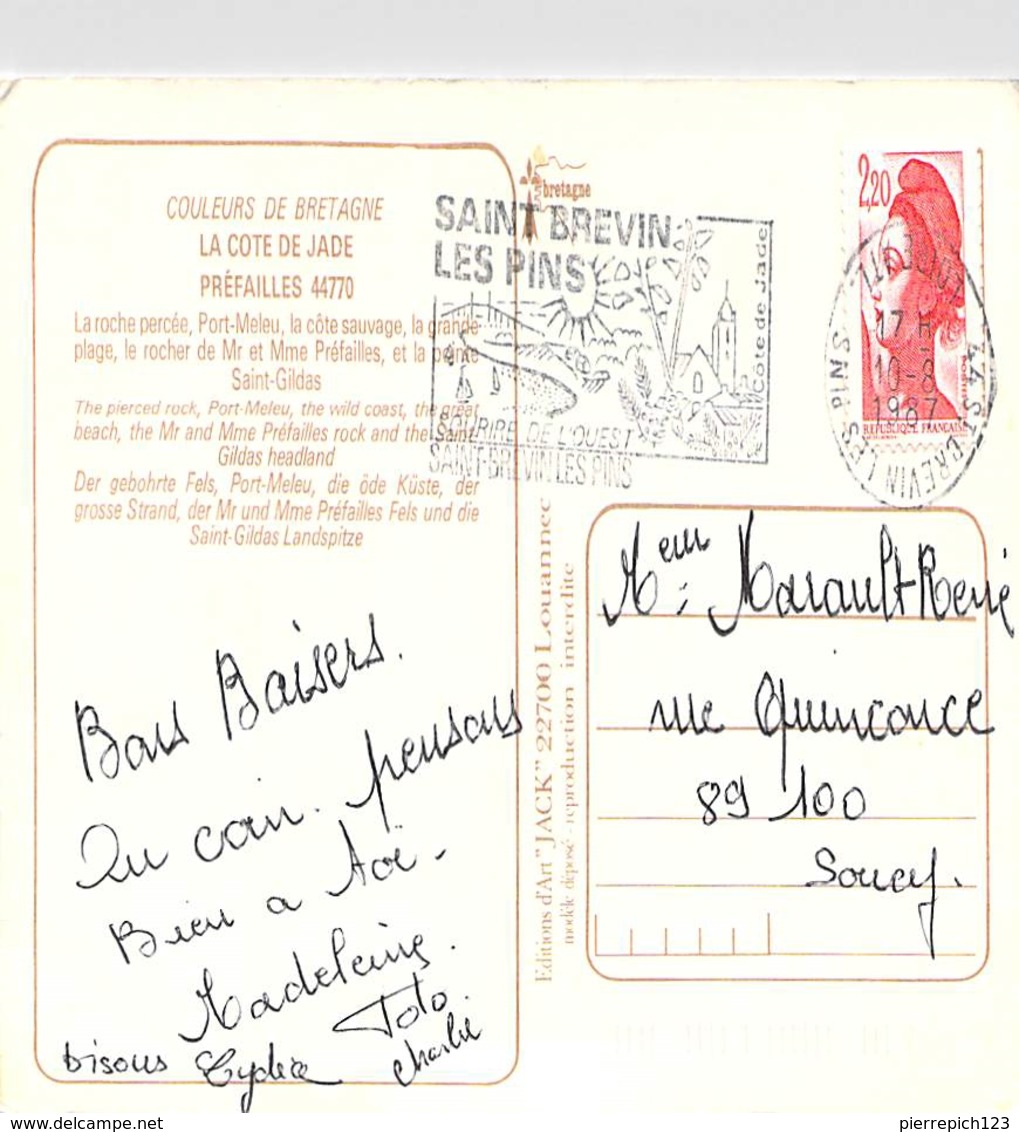 COULEURS DE BRETAGNE
LA COTE DE JADE
PRÉFAILLES 44770
La roche percée, Port-Meleu, la côte sauvage, la grande
plage, le rocher de Mr et Mme Préfailles, et la pointe
Saint-Gildas
The pierced rock, Port-Meleu, the wild coast, the great
beach, the Mr and Mme Préfailles rock and the Saint
Gildas headland
Der gebohrte Fels, Port-Meleu, die öde Küste, der
grosse Strand, der Mr und Mme Préfailles Fels und die
Saint-Gildas Landspitze
bretagne
SAINT BREVIN
LES PINS
Côte de Jade
SOURIRE DE L'OUEST
SAINT-BREVIN LES PINS
2,20
17 H
10-8
1987
44 ST BREVIN LES PINS
REPUBLIQUE FRANÇAISE
Bons Baisers.
Du coin. pensons
Bien a toi -
Madeleine.
Toto.
bisous Lydia Charlie
Editions d'Art "JACK" 22700 Louannec
modèle déposé - reproduction interdite
Mem: Marault René
rue Quinconce
89 100
Soucy.
pierrepich123